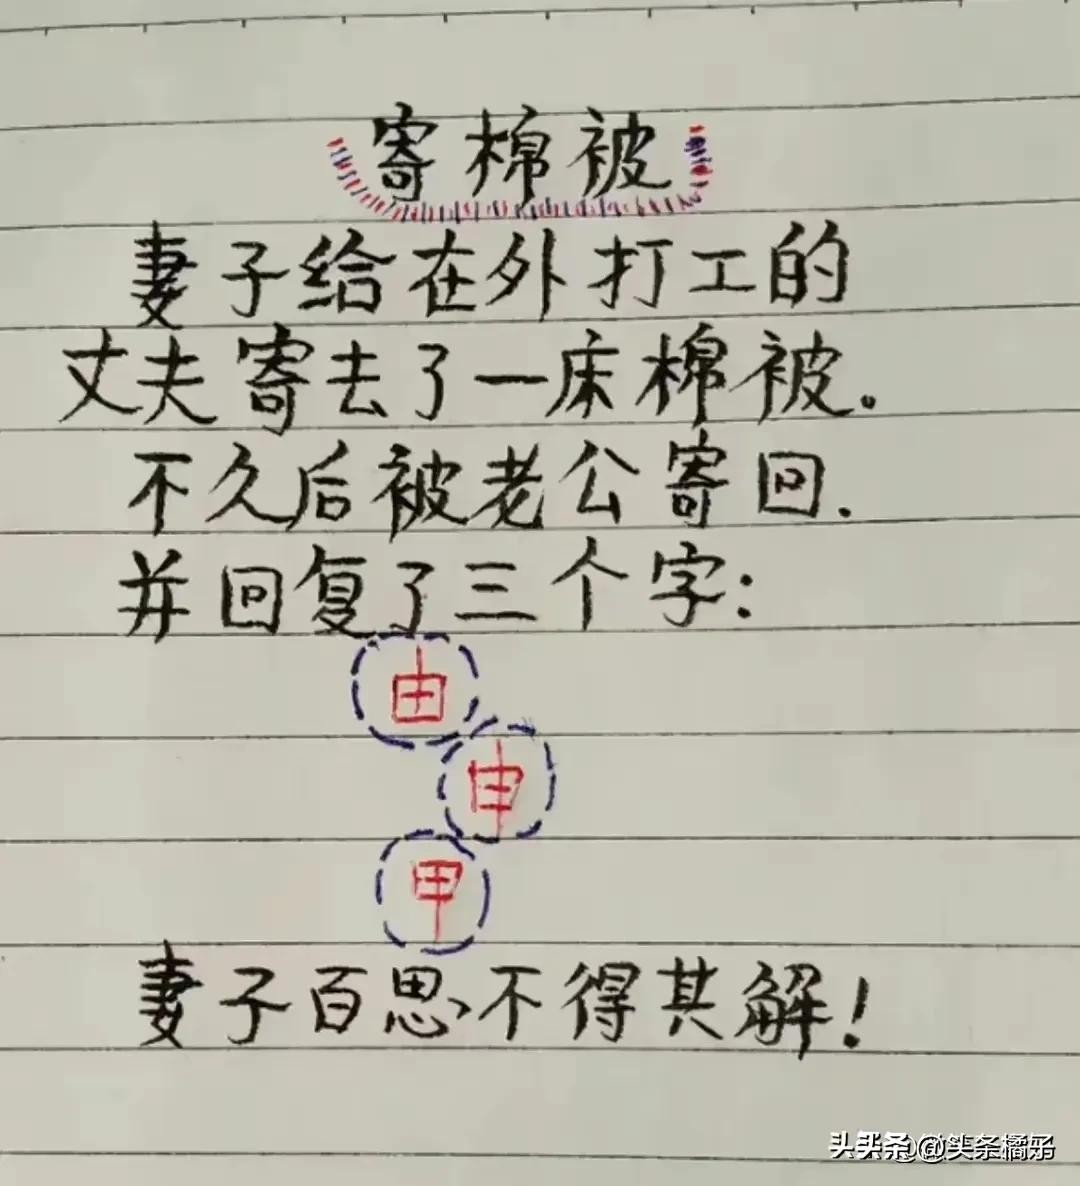 寄棉被
妻子给在外打工的
丈夫寄去了一床棉被.
不久后被老公寄回.
并回复了三个字:
由
申
甲
妻子百思不得其解!
头条 @头条橘子